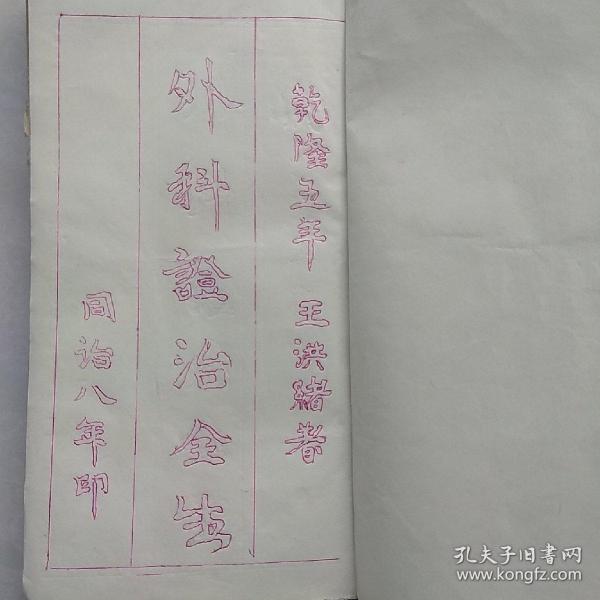 乾隆五年 王洪緒著
外科證治全生
同治八年印
孔夫子旧书网
www.kongfz.com